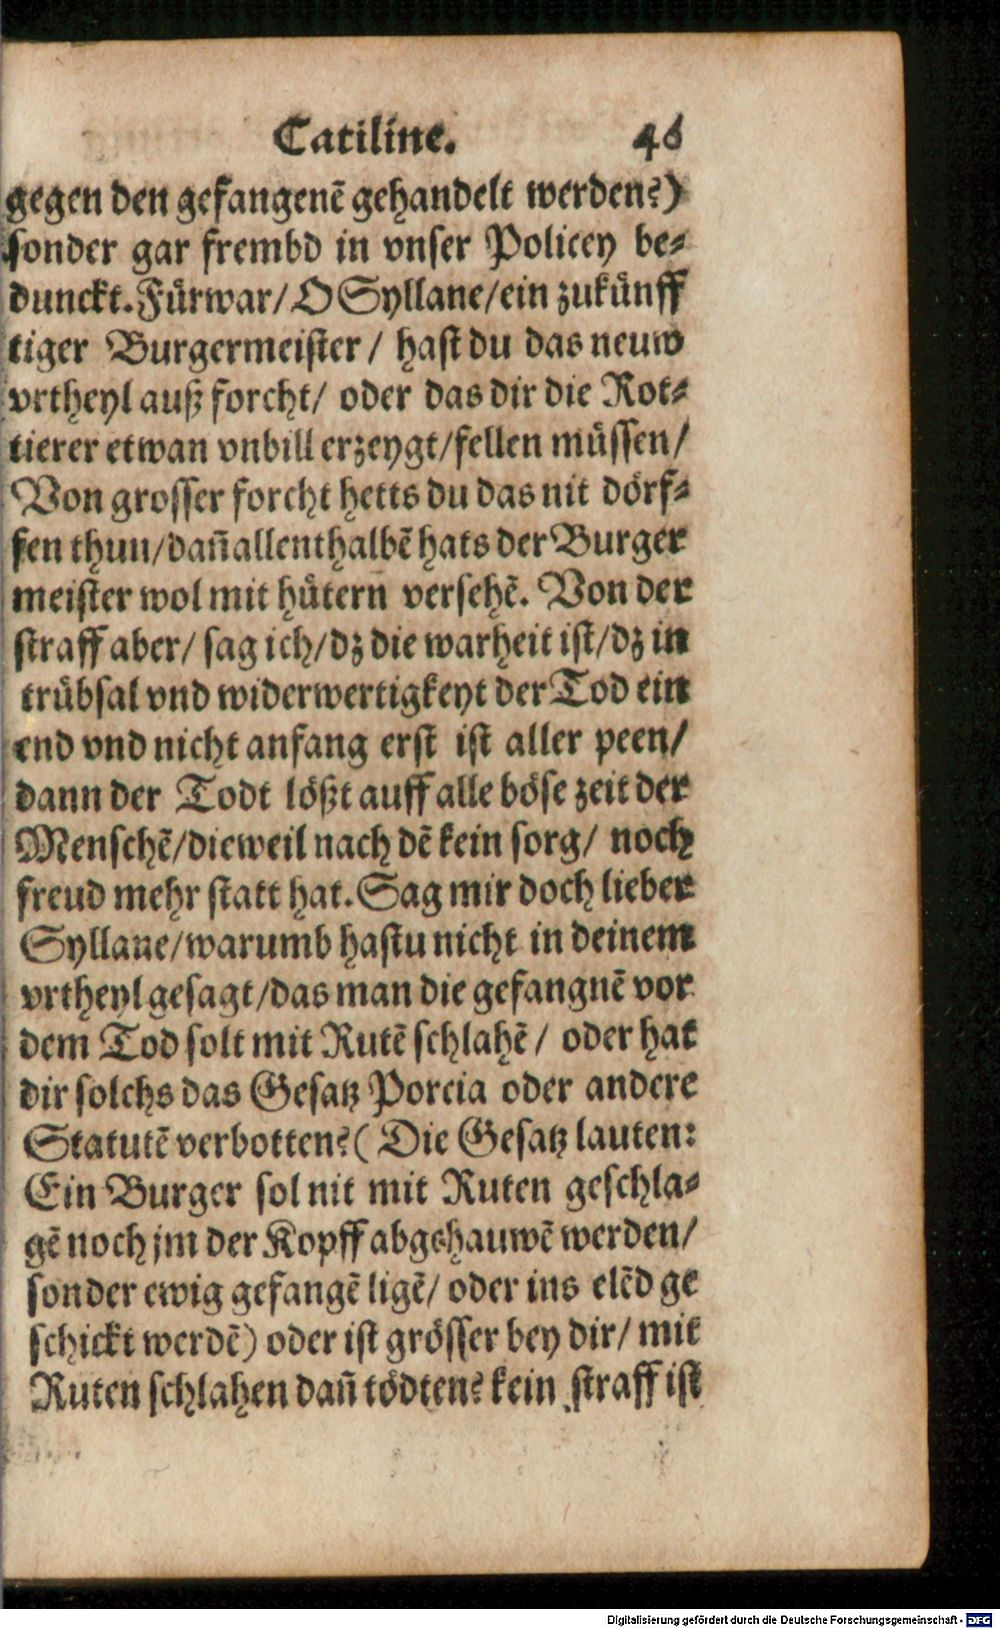 Catiline. 46
gegen den gefangenẽ gehandelt werden?)
sonder gar frembd in vnser Policey be⸗
dunckt. Fürwar/ O Syllane/ ein zukünff
tiger Burgermeister/ hast du das neuw
vrtheyl auß forcht/ oder das dir die Rot⸗
tierer etwan vnbill erzeygt/ fellen müssen/
Von grosser forcht hetts du das nit dörf⸗
fen thun/ dañ allenthalbẽ hats der Burger
meister wol mit hütern versehẽ. Von der
straff aber/ sag ich/ dz die warheit ist/ dz in
trübsal vnd widerwertigkeyt der Tod ein
end vnd nicht anfang erst ist aller peen/
dann der Todt lößt auff alle böse zeit der
Menschẽ/ dieweil nach dẽ kein sorg/ noch
freud mehr statt hat. Sag mir doch lieber
Syllane/ warumb hastu nicht in deinem
vrtheyl gesagt/ das man die gefangnẽ vor
dem Tod solt mit Rutẽ schlahẽ/ oder hat
dir solchs das Gesatz Porcia oder andere
Statutẽ verbotten? (Die Gesatz lauten:
Ein Burger sol nit mit Ruten geschla⸗
gẽ noch jm der Kopff abgehauwẽ werden/
sonder ewig gefangẽ ligẽ/ oder ins elẽd ge
schickt werdẽ) oder ist grösser bey dir/ mit
Ruten schlahen dañ tödten? kein straff ist
Digitalisierung gefördert durch die Deutsche Forschungsgemeinschaft - DFG